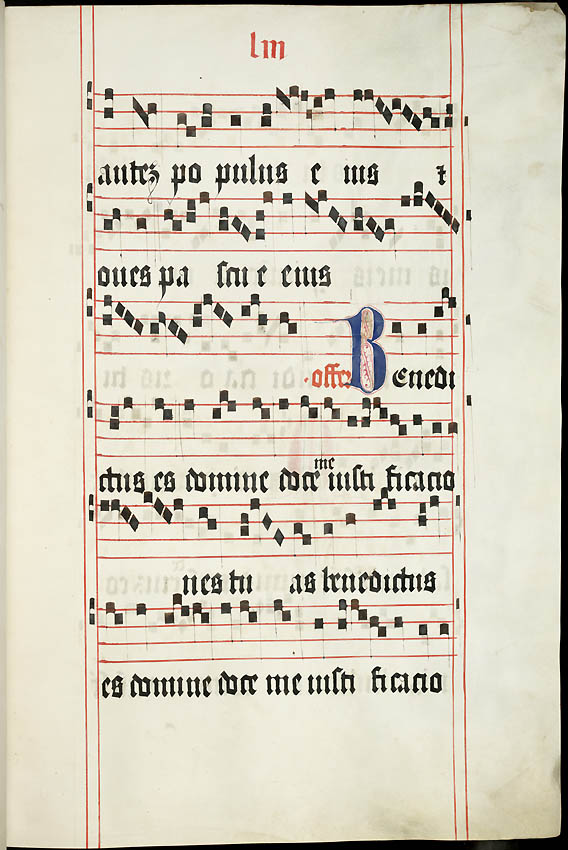 liii
autez po pulus e ius ⁊
oues pa scu e eius
offer Benedi
ctus es domine doce me iusti ficacio
nes tu as benedictus
es domine doce me iusti ficacio